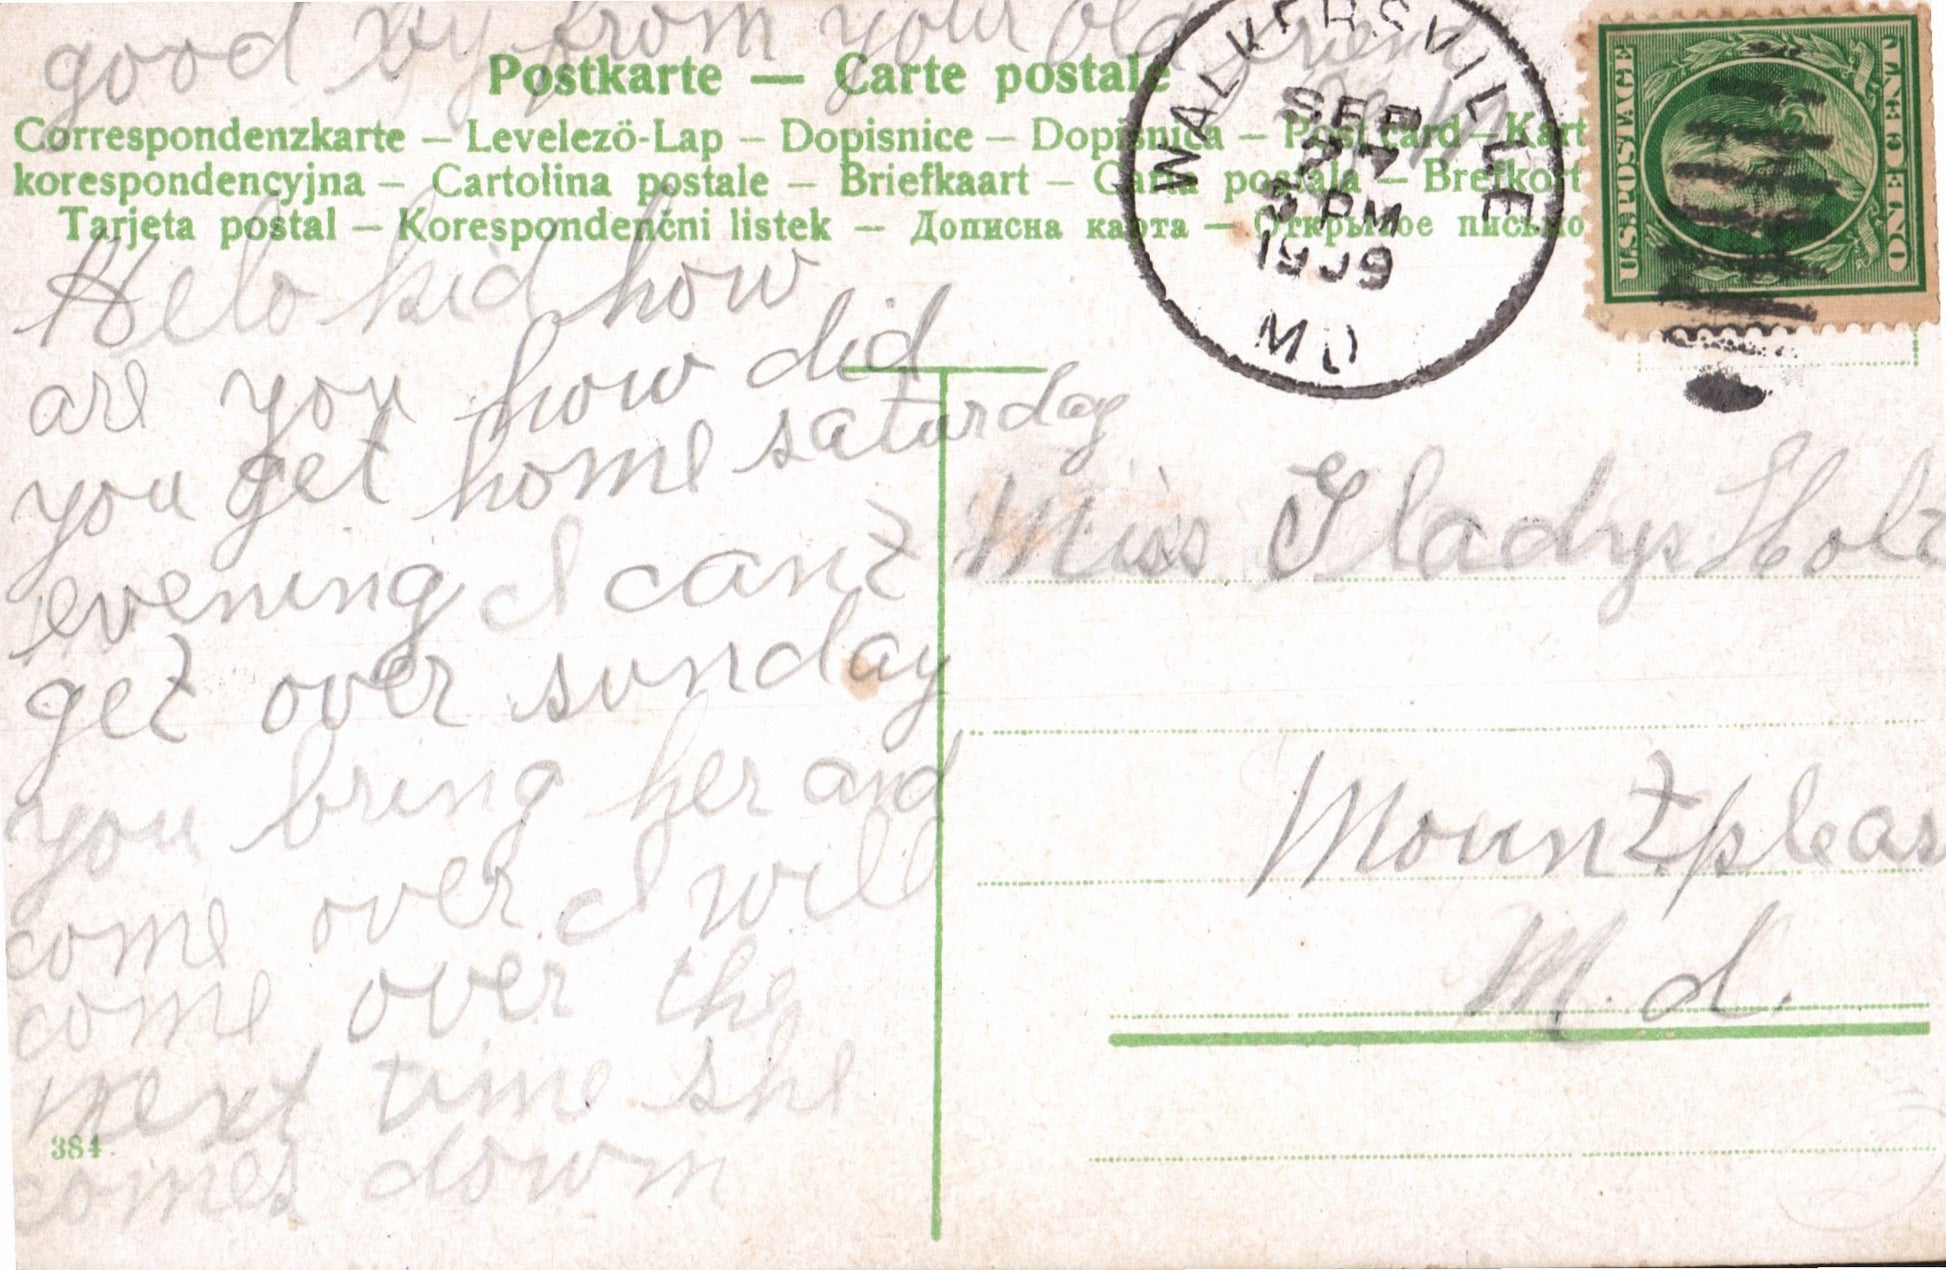 good by from your old friend
Postkarte — Carte postale
Correspondenzkarte – Levelező-Lap – Dopisnice – Dopisnica – Post card – Kart
korespondencyjna – Cartolina postale – Briefkaart – Carta postala – Brefkort
Tarjeta postal – Korespondenčni listek – Дописна карта – Открытое письмо
WALKERSVILLE
SEP
27
3 PM
1909
MD
U.S. POSTAGE
ONE CENT
Helo kid how
are you how did
you get home saturday
evening I cant
get over sunday
you bring her and
come over I will
come over the
next time she
comes down
384
Miss Gladys Holz
Mountpleas
Md.